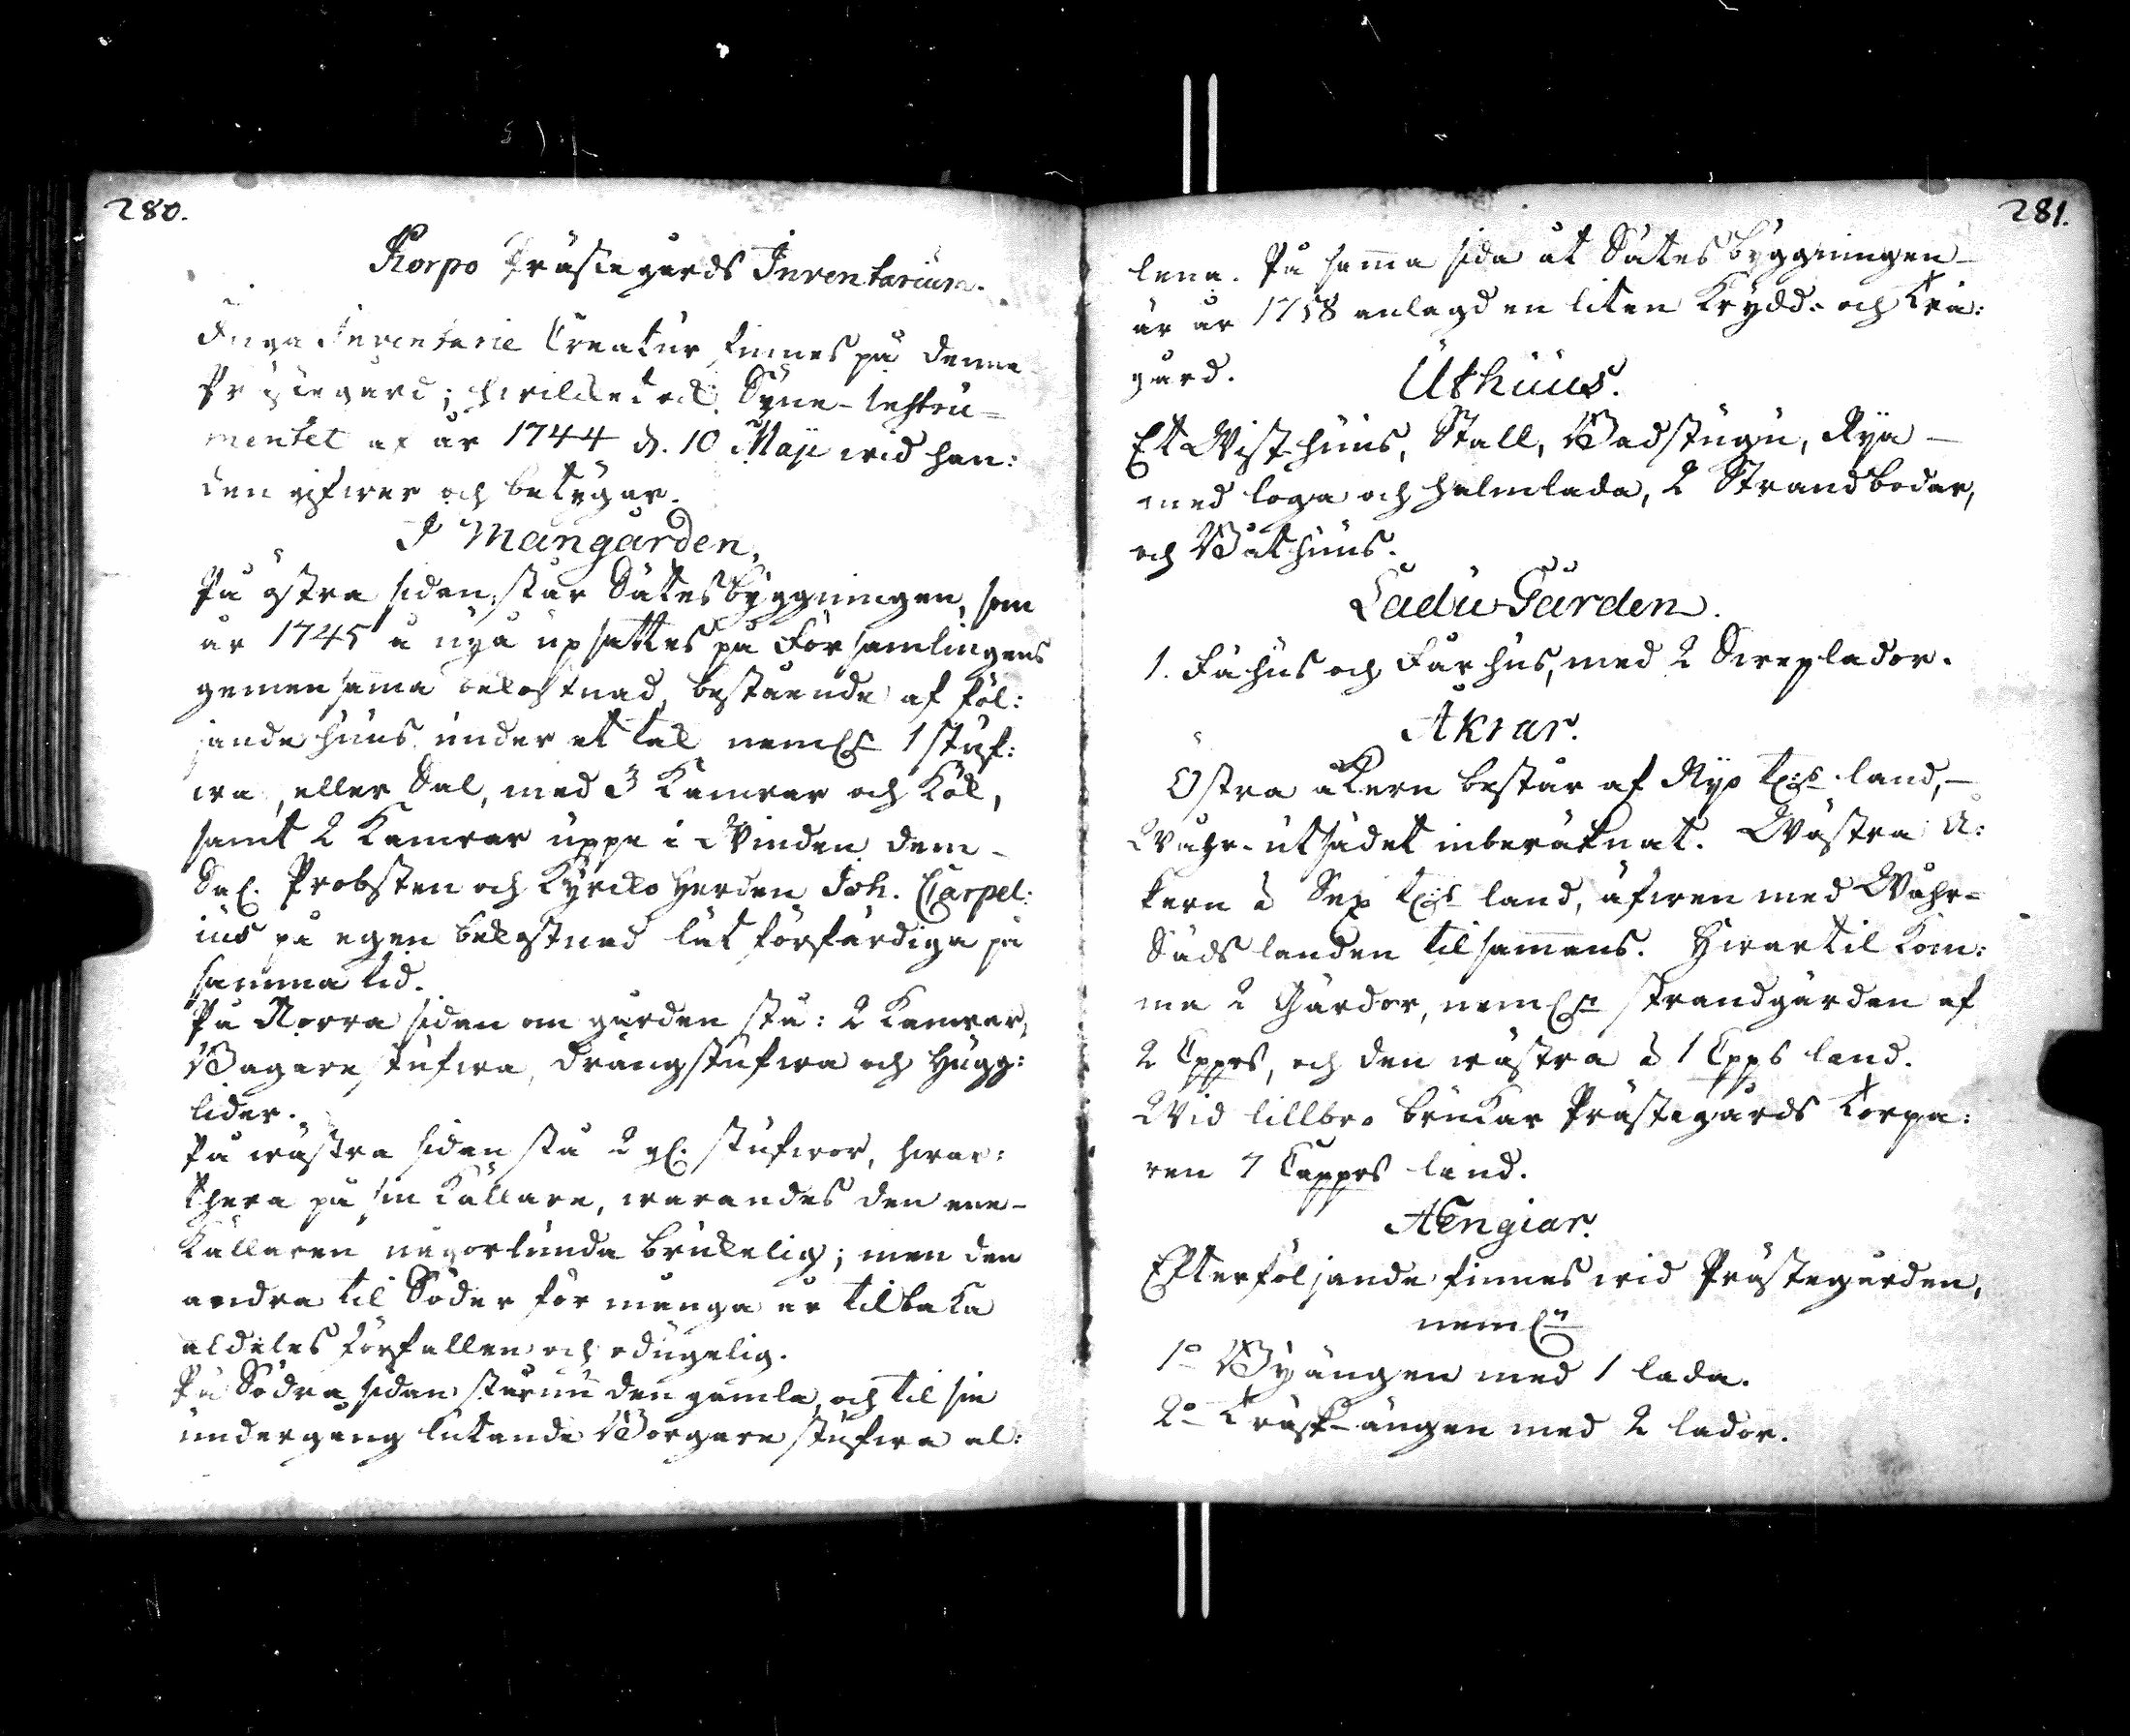 280.
Korpo Prästegårds Inventarium.
Inga Inventarie Creatur finnes på denne
Prästegård; hwilket ock Syne-Instru-
mentet af år 1744 d. 10 Maji wid han:
den gifwer och betygar.
I Mangården,
På östra sidan står Sätesbyggningen, som
år 1745 å nya upsattes på Församlingens
gemensama bekostnad, bestående af föl:
jande huus under et tak neml. 1 stuf:
wa, eller Sal, med 3 Kamrar och Kök,
samt 2 Kamrar uppe i Winden dem-
Sal. Probsten och Kyrcko Herden Joh. Carpel:
ius på egen bekostnad låt förfärdiga på
samma tid.
På Norra sidan om gården stå: 2 Kamrar,
Bagare stufwa, Drängstufwa och Hugg:
lider.
På wästra sidan stå 2 gl. stufwor, hwar:
thera på sin Källare, warandes den ene-
Källaren någorlunda brukelig; men den
andra til Söder för många år tilbaka
aldeles förfallen och odugelig.
På Södra sidan står nu den gamla, och til sin
undergång lutande Borgare stufwa al:
281.
lena. På sama sida åt Sätesbyggningen-
är år 1758 anlagd en liten Krydd- och Trä:
gård.
Uthuus.
Et Wisthuus, Stall, Badstugu, Rya-
med loga och halmlada, 2 Strandbodar,
och Båthuus.
Ladu Gården.
1. Fähus och Fårhus, med 2 Sweplador.
Åkrar.
Östra åkern består af Nyo land,-
Wåhr-utsädet inberäknat. Wästra Å:
kern à Sex land, äfwen med Wåhr-
Säds landen tilsamans. Hwartil kom:
ma 2 Gärdor, neml. strandgärdan af
2 Cpprs, och den wästra à 1 Cpps land.
Wid lillbro brukar Prästegårds Torpa:
ren 7 Capprs land.
AEngiar.
Efterföljande finnes wid Prästegården,
neml.
1o Byängen med 1 lada.
2o Träsk-ängen med 2 lador.